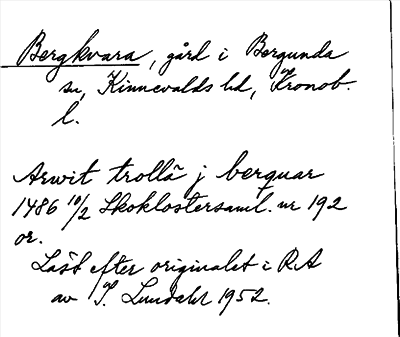 Bergkvara, gård i Bergunda
sn, Kinnevalds hd, Kronob.
l.
Arwit trollã j berquar
1486 10/2 Skoklostersaml. nr 192
or.
Läst efter originalet i RA
av I. Lundahl 1952.